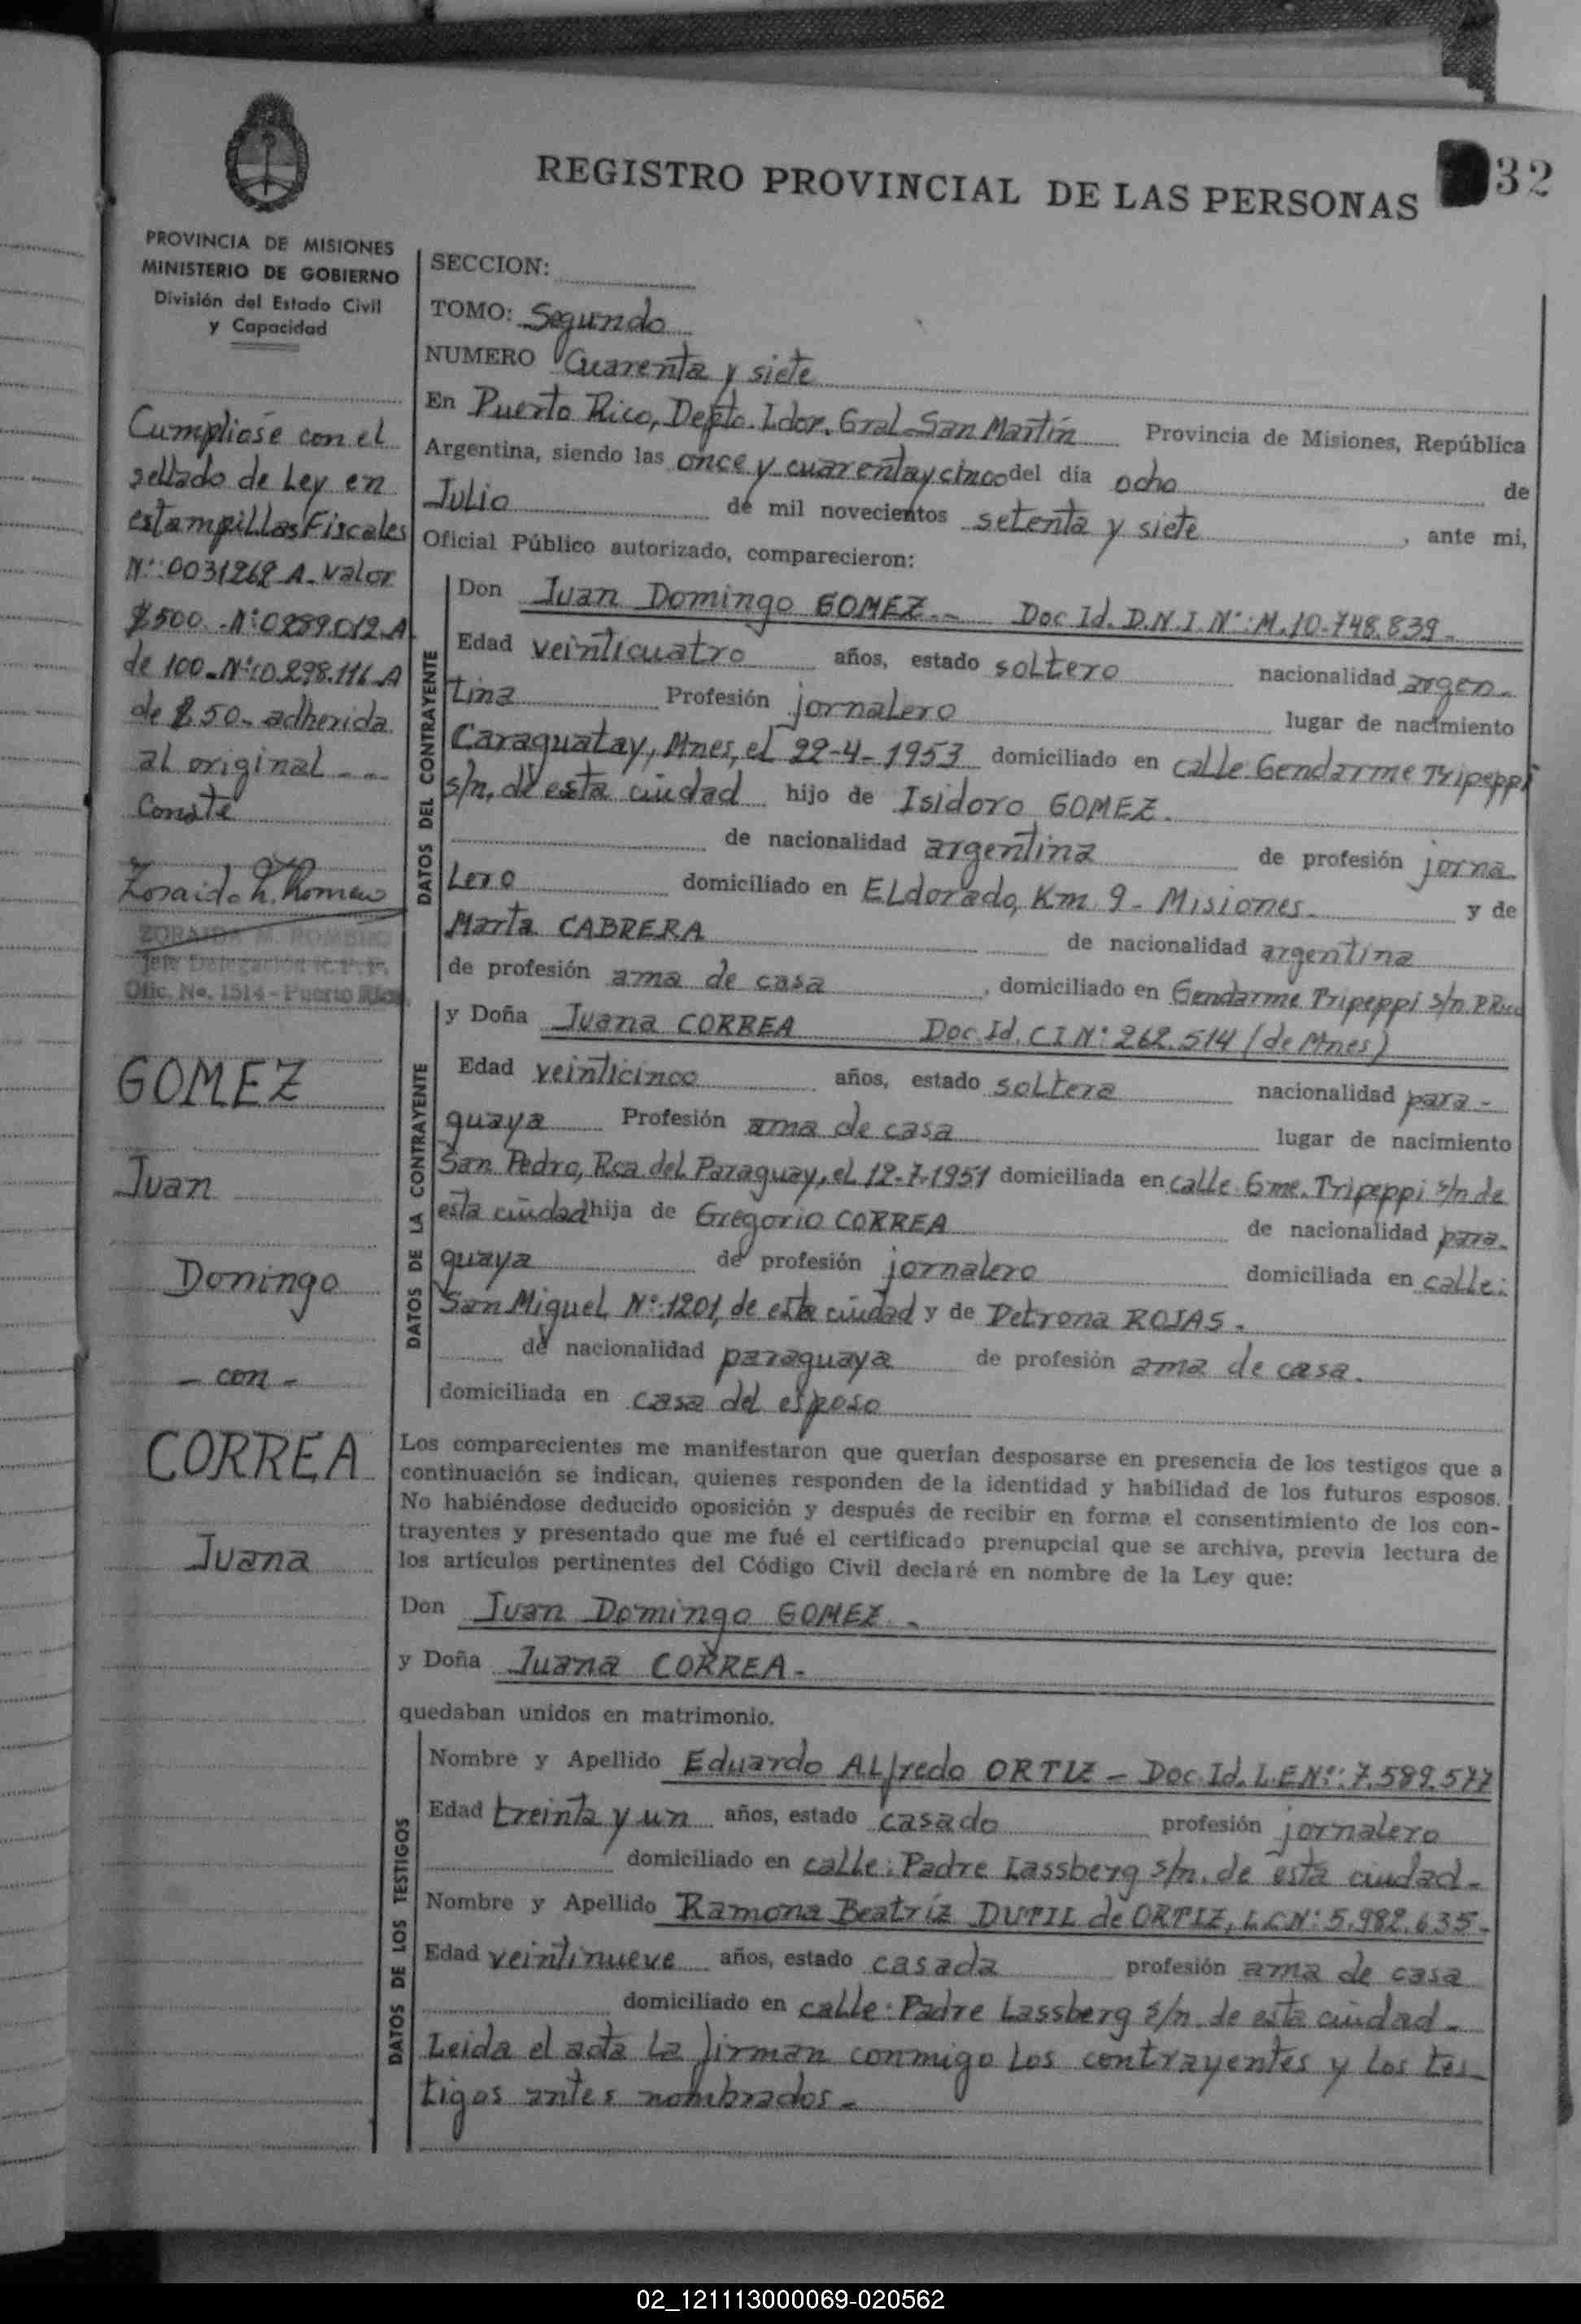 REGISTRO PROVINCIAL DE LAS PERSONAS
32
PROVINCIA DE MISIONES
MINISTERIO DE GOBIERNO
División del Estado Civil
y Capacidad
Cumplióse con el
sellado de Ley en
estampillas Fiscales
Nº:0031262 A. Valor
$500.-Nº:0289.012.A
de 100.-Nº:0.298.116 A
de $50.- adherida
al original - -
Conste
ZORAIDA M. ROMERO
Jefe Delegación R. P. P.
Ofic. No. 1514 - Puerto Rico
GOMEZ
Juan
Domingo
- con -
CORREA
Juana
SECCION:
TOMO: Segundo
NUMERO Cuarenta y siete
En Puerto Rico, Depto. Ldor. Gral. San Martín Provincia de Misiones, República
Argentina, siendo las once y cuarenta y cinco del día ocho de
Julio de mil novecientos setenta y siete, ante mi,
Oficial Público autorizado, comparecieron:
DATOS DEL CONTRAYENTE
Don Juan Domingo GOMEZ.- Doc Id. D.N.I. Nº: M.10.748.839.-
Edad veinticuatro años, estado soltero nacionalidad argen-
tina Profesión jornalero lugar de nacimiento
Caraguatay, Mnes, el 22-4-1953 domiciliado en calle Gendarme Tripeppi
s/n, de esta ciudad hijo de Isidoro GOMEZ.
de nacionalidad argentina de profesión jorna-
lero domiciliado en Eldorado, Km. 9 - Misiones. y de
Marta CABRERA de nacionalidad argentina
de profesión ama de casa, domiciliado en Gendarme Tripeppi s/n P.Rico
DATOS DE LA CONTRAYENTE
y Doña Juana CORREA Doc. Id. C I Nº: 262.514 (de Mnes)
Edad veinticinco años, estado soltera nacionalidad para-
guaya Profesión ama de casa lugar de nacimiento
San Pedro, Rca del Paraguay, el 12-7-1951 domiciliada en calle Gme. Tripeppi s/n de
esta ciudad hija de Gregorio CORREA de nacionalidad para-
guaya de profesión jornalero domiciliada en calle:
San Miguel Nº:1201, de esta ciudad y de Petrona ROJAS.
de nacionalidad paraguaya de profesión ama de casa.
domiciliada en casa del esposo
Los comparecientes me manifestaron que querían desposarse en presencia de los testigos que a
continuación se indican, quienes responden de la identidad y habilidad de los futuros esposos.
No habiéndose deducido oposición y después de recibir en forma el consentimiento de los con-
trayentes y presentado que me fué el certificado prenupcial que se archiva, previa lectura de
los artículos pertinentes del Código Civil declaré en nombre de la Ley que:
Don Juan Domingo GOMEZ.-
y Doña Juana CORREA-
quedaban unidos en matrimonio.
DATOS DE LOS TESTIGOS
Nombre y Apellido Eduardo Alfredo ORTIZ - Doc. Id. L.E Nº: 7.589.577
Edad treinta y un años, estado casado profesión jornalero
domiciliado en calle: Padre Lassberg s/n. de esta ciudad-
Nombre y Apellido Ramona Beatríz DUTIL de ORTIZ, L C Nº: 5.982.635-
Edad veintinueve años, estado casada profesión ama de casa
domiciliado en calle: Padre Lassberg s/n. de esta ciudad-
Leida el acta la firman conmigo los contrayentes y los tes-
tigos antes nombrados-
02_121113000069-020562